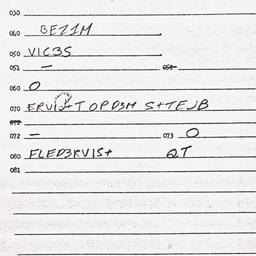 030
040 BEZ1M
050 VIC3S
051 — 052
060 O
070 ERVI2+TOPD3M S+TEJB
072 — 073 O
080 FLED3RVIS+ QT
081